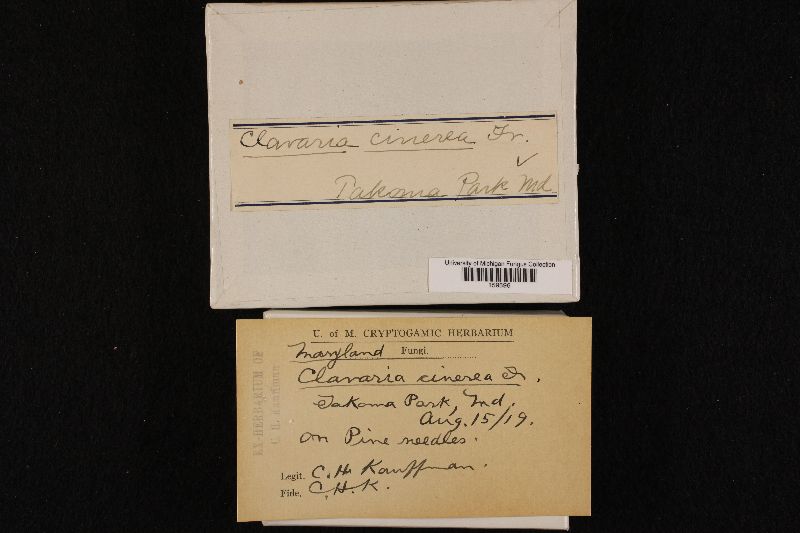 Clavaria cinerea Fr.
Takoma Park Md.
University of Michigan Fungus Collection
U. of M. CRYPTOGAMIC HERBARIUM
Maryland Fungi.
Clavaria cinerea Fr.
Takoma Park, Md.
Aug. 15/19.
on Pine needles.
Legit. C. H. Kauffman.
Fide, C. H. K.
EX-HERBARIUM OF
C. H. Kauffman